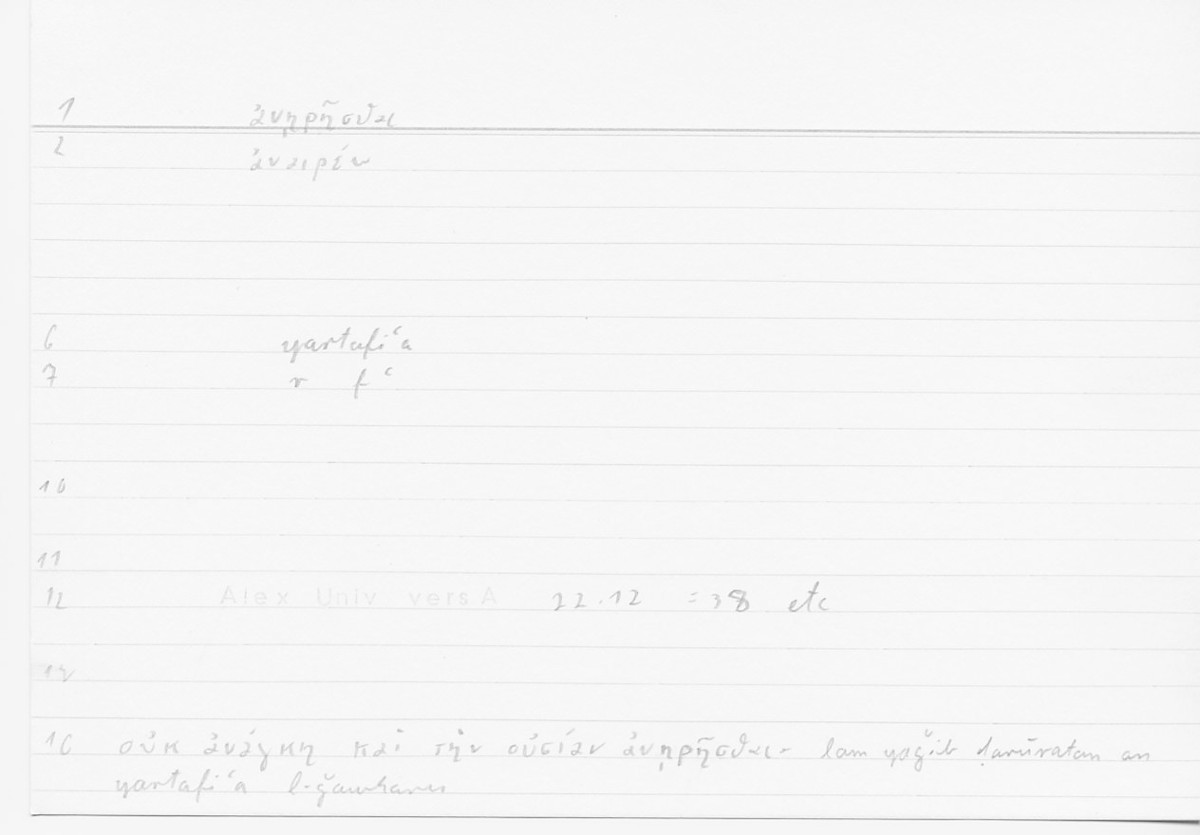 1 ἀνῃρῆσθαι
2 ἀναιρέω
6 yartafiʿa
7 r f ʿ
10
11
12 Alex Univ vers A 22.12 = 38 etc
16 οὐκ ἀνάγκη καὶ τὴν οὐσίαν ἀνῃρῆσθαι - lam yaǧib ḍarūratan an
yartafiʿa l-ǧawharu